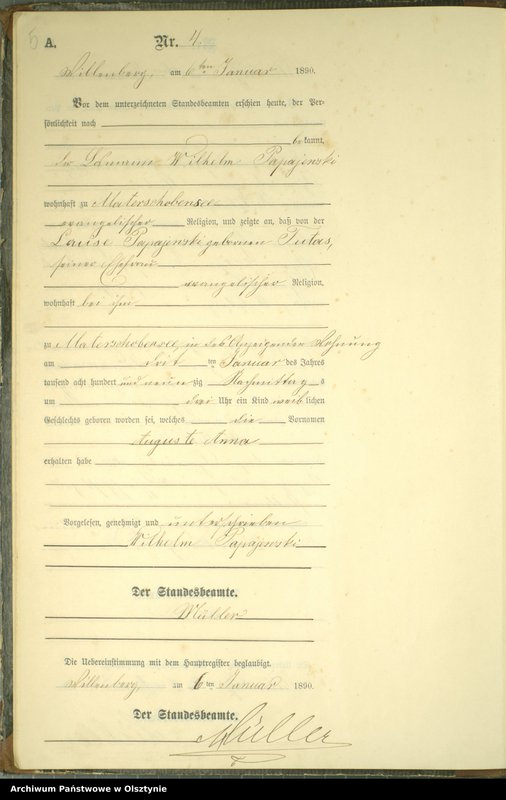 5 A. Nr. 4.
Willenberg, am 6ten Januar 1890.
Vor dem unterzeichneten Standesbeamten erschien heute, der Per-
sönlichkeit nach
be kannt,
der Wilhelm Papajewski
wohnhaft zu Materschobensee
evangelischer Religion, und zeigte an, daß von der
Louise Papajewski geborenen Tutas,
seiner Ehefrau
evangelischer Religion,
wohnhaft bei ihm
zu Materschobensee, in des Anzeigenden Wohnung
am ten Januar des Jahres
tausend acht hundert und neun zig Nachmittag s
um drei Uhr ein Kind weiblichen
Geschlechts geboren worden sei, welches die Vornamen
Auguste Anna
erhalten habe
Vorgelesen, genehmigt und unterschrieben
Wilhelm Papajewski
Der Standesbeamte.
Müller
Die Uebereinstimmung mit dem Hauptregister beglaubigt.
Willenberg, am 6ten Januar 1890.
Der Standesbeamte.
Müller
Archiwum Państwowe w Olsztynie